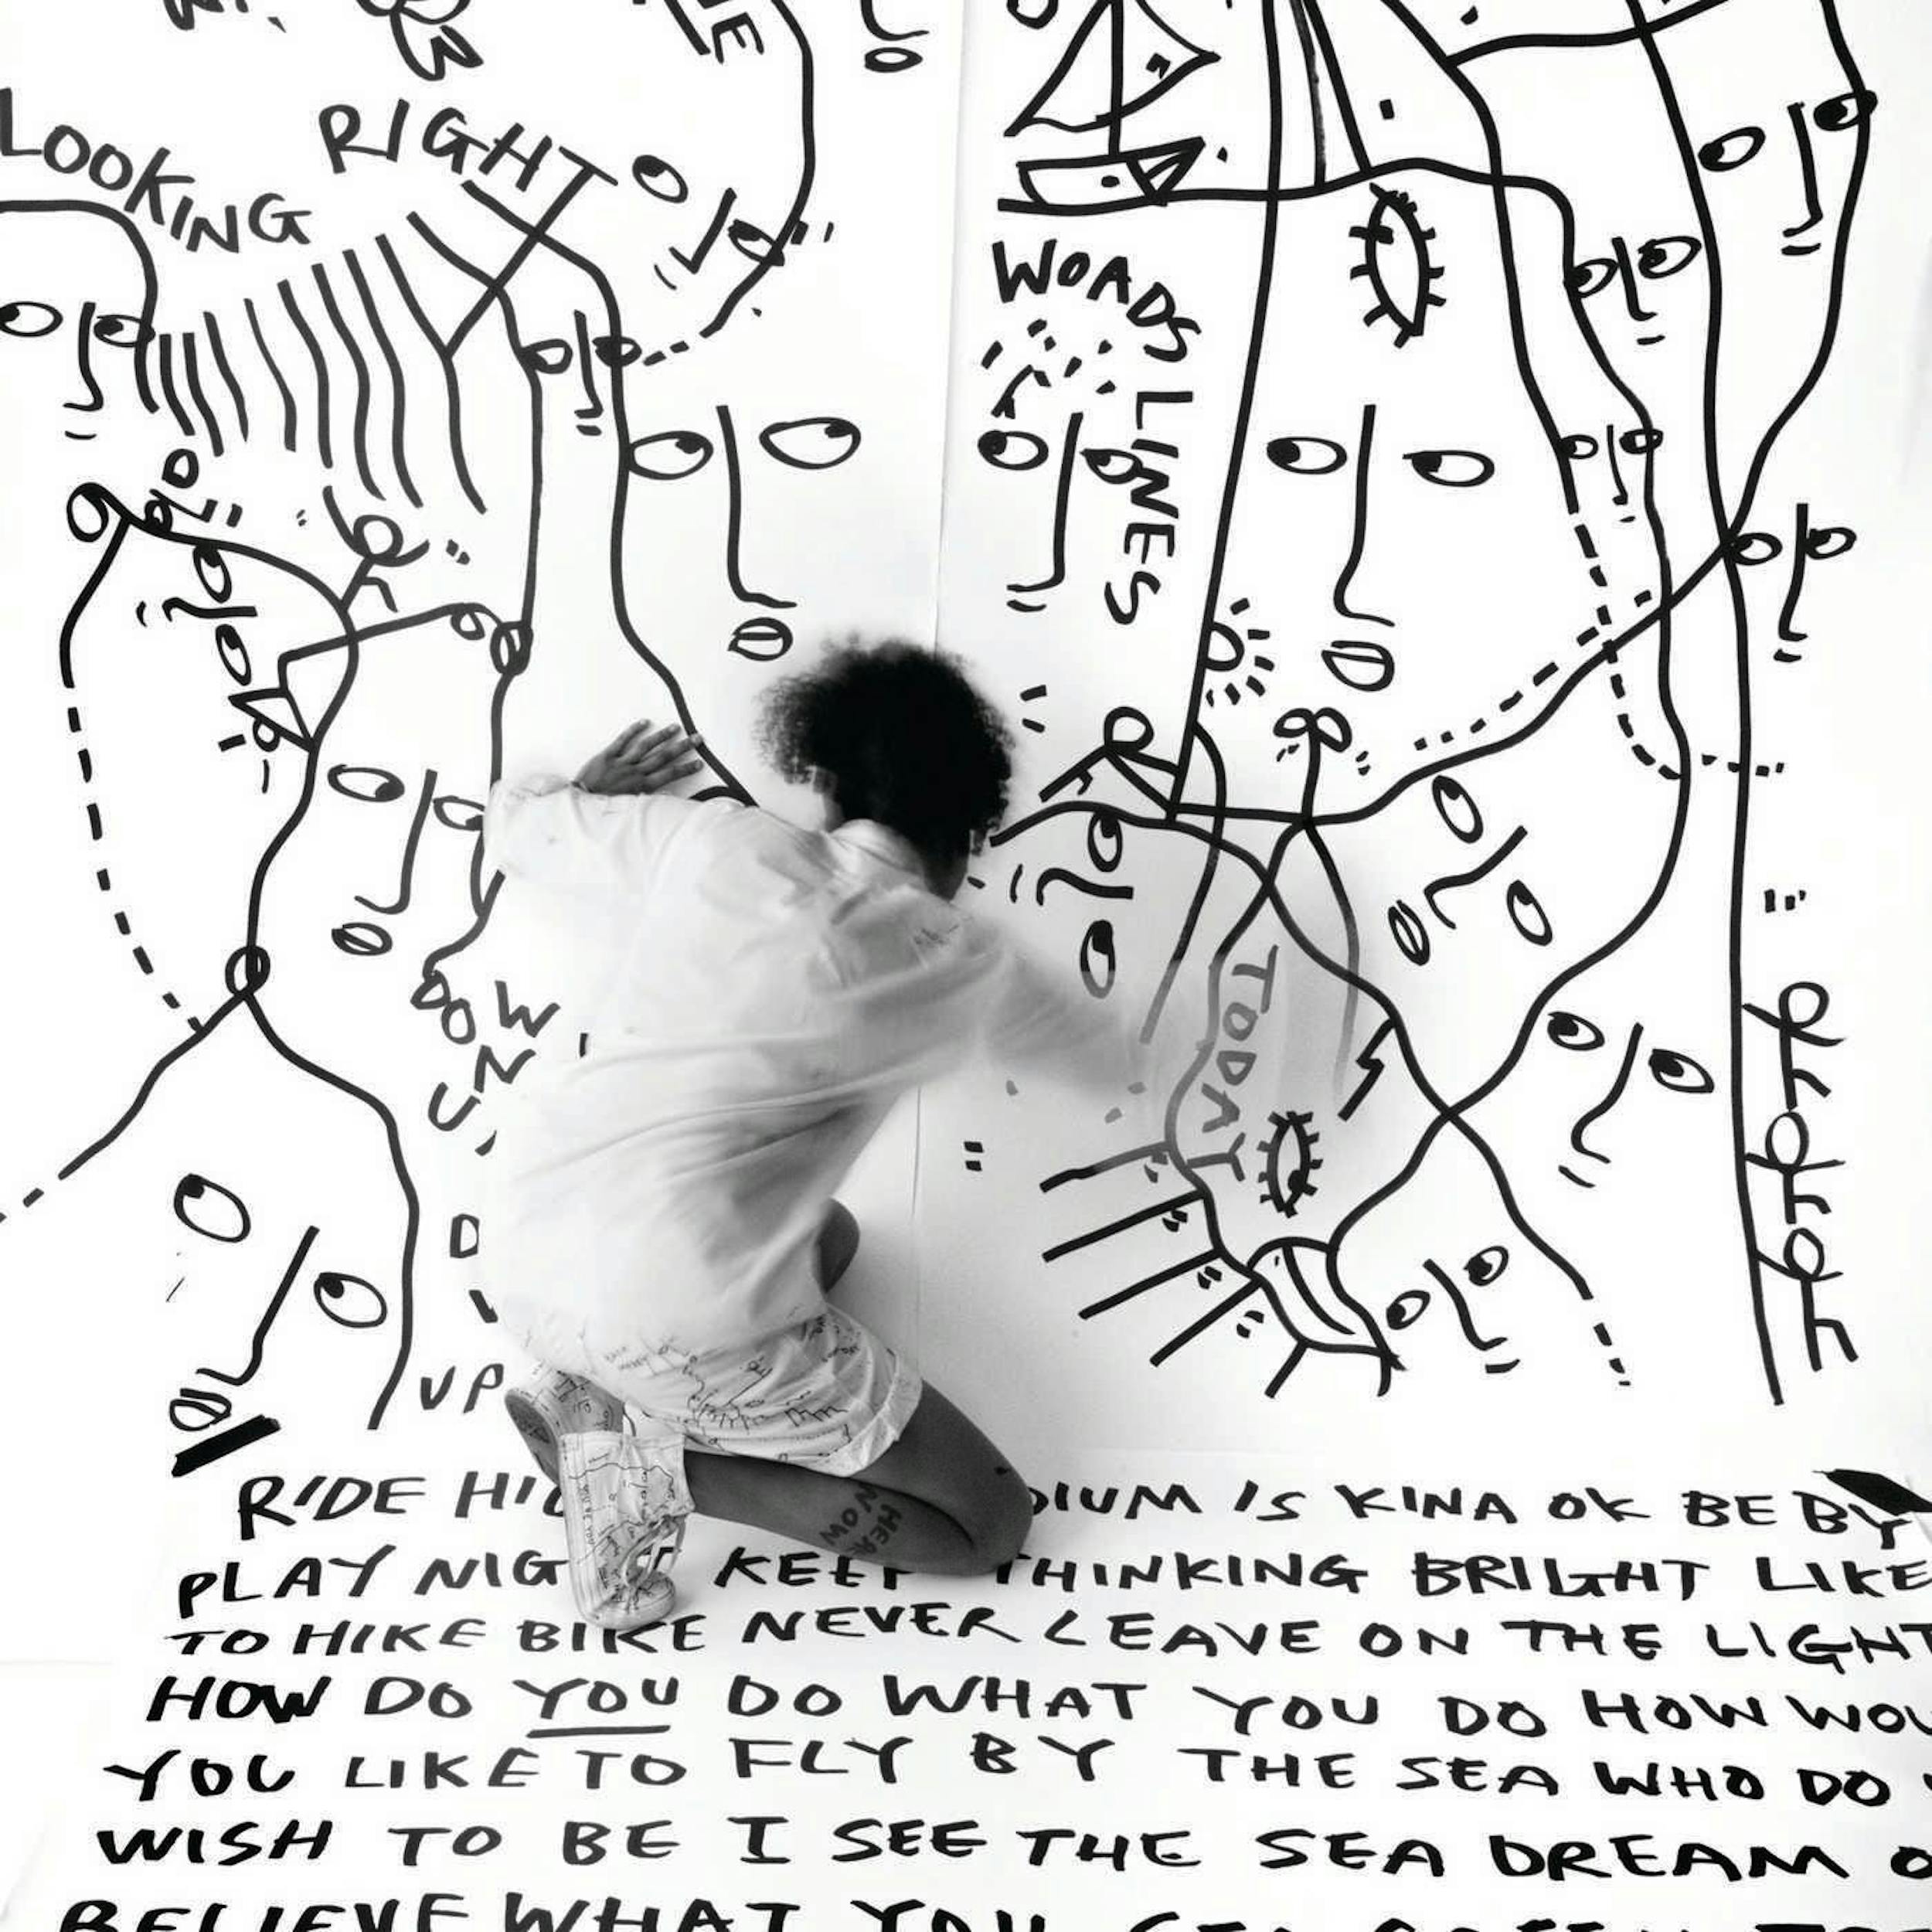 LOOKING
RIGHT
WOADS
LINES
DOWN
TODAY
UP
NOW
RIDE IUM IS KINA OK BE BY
PLAY KEEP THINKING BRIGHT LIKE
TO HIKE BIKE NEVER LEAVE ON THE LIGHT
HOW DO YOU DO WHAT YOU DO HOW WOU
YOU LIKE TO FLY BY THE SEA WHO DO
WISH TO BE I SEE THE SEA DREAM
BELIEVE WHAT YOU